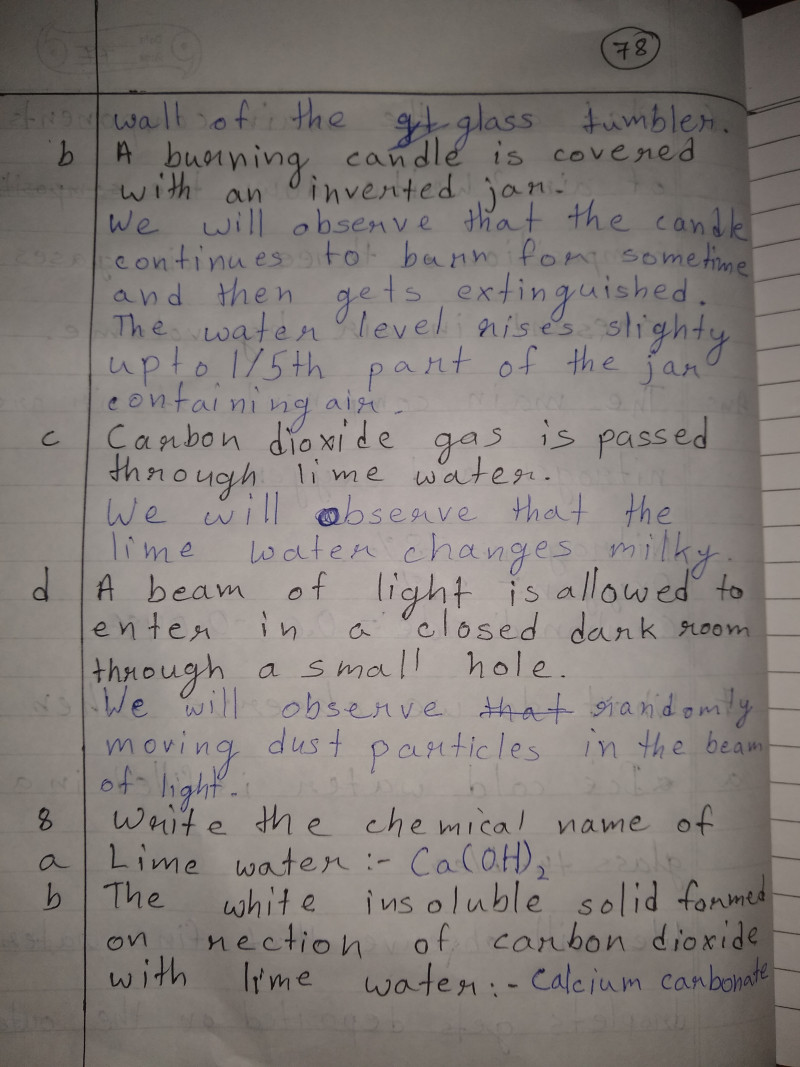 78
wall of the glass tumbler.
b A burning candle is covered
with an inverted jar.
We will observe that the candle
continues to burn for sometime
and then gets extinguished.
The water level rises slighty
upto 1/5th part of the jar
containing air.
c Carbon dioxide gas is passed
through lime water.
We will observe that the
lime water changes milky.
d A beam of light is allowed to
enter in a closed dark room
through a small hole.
We will observe that randomly
moving dust particles in the beam
of light.
8 Write the chemical name of
a Lime water :- Ca(OH)2
b The white insoluble solid formed
on rection of carbon dioxide
with lime water :- Calcium carbonate